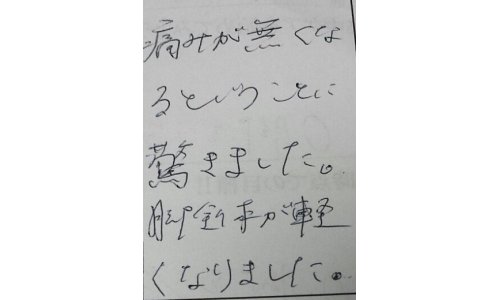 痛みが無くな
るということに
驚きました。
脚全体が軽
くなりました。